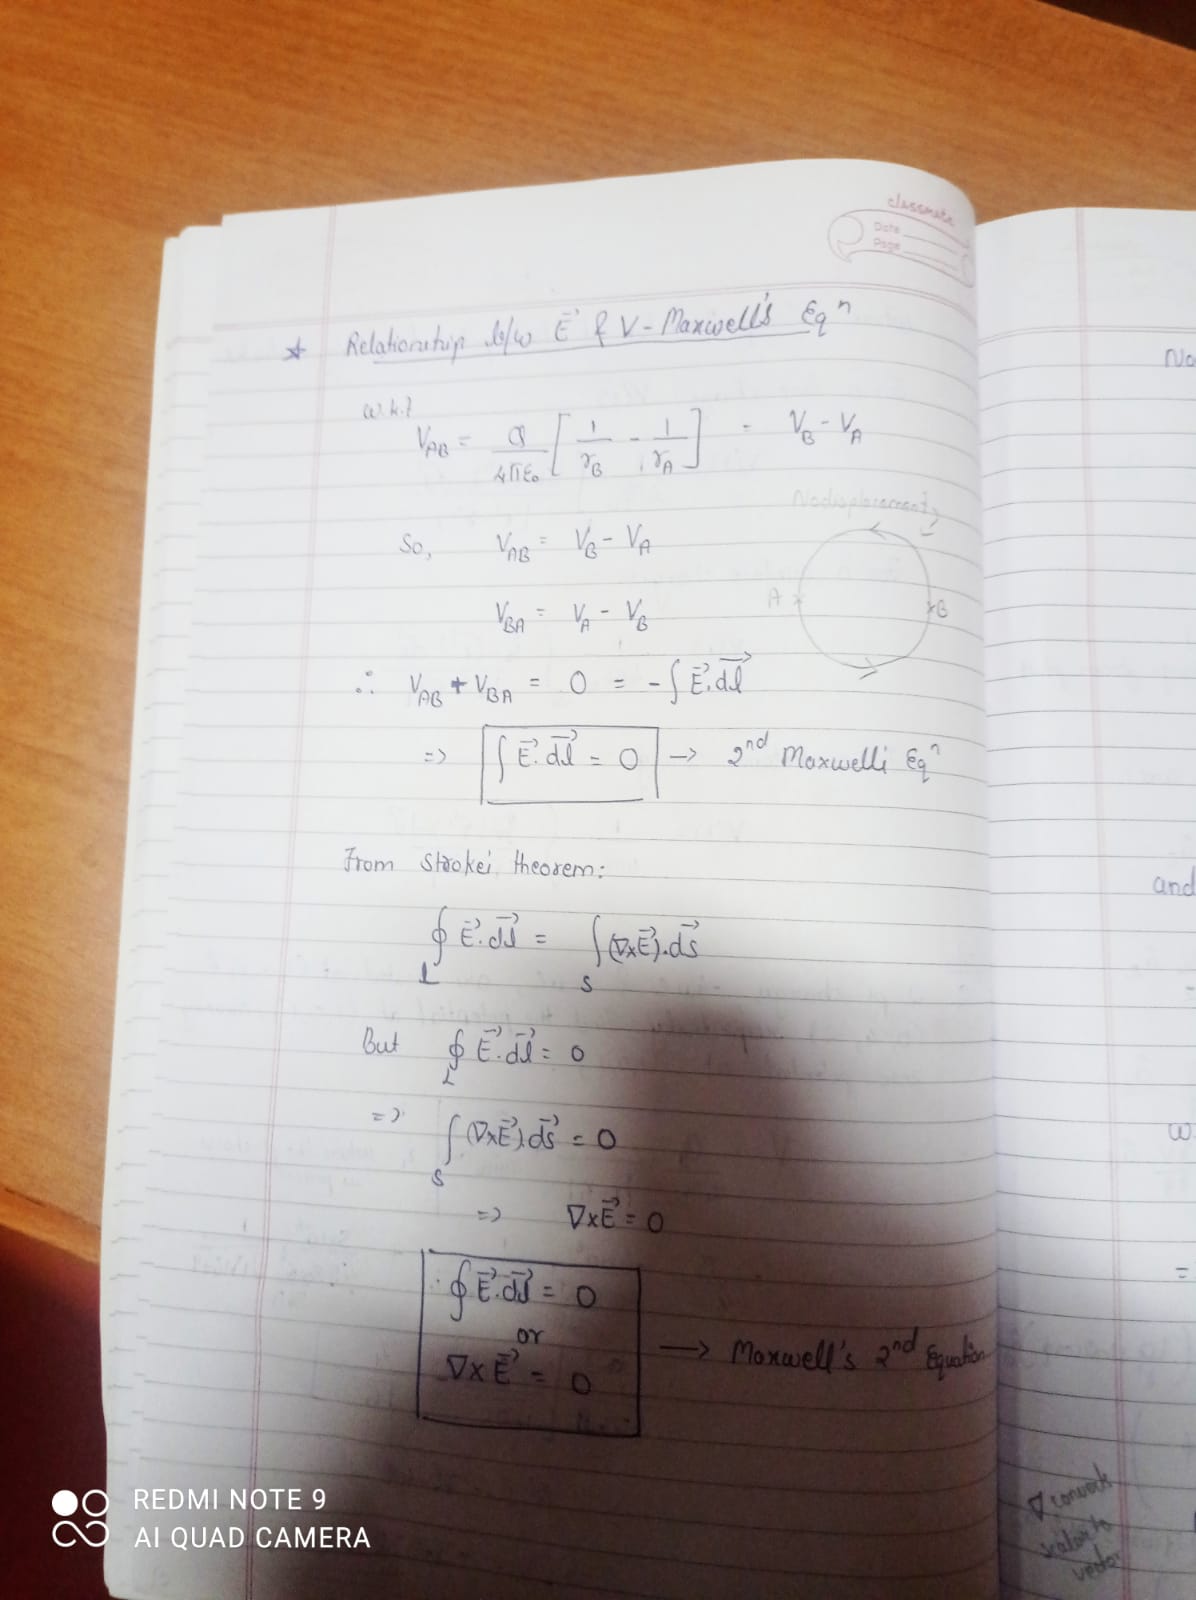 classmate
Date
Page
★ Relationship b/w E⃗ & V - Maxwell's Eqⁿ
w.k.t
V_AB = Q/4πε₀ [1/r_B - 1/r_A] = V_B - V_A
No displacement
So, V_AB = V_B - V_A
A B
V_BA = V_A - V_B
∴ V_AB + V_BA = 0 = -∫ E⃗.dl⃗
=> ∫ E⃗.dl⃗ = 0 → 2nd Maxwell's Eqⁿ
From Stroke's theorem:
∮_L E⃗.dl⃗ = ∫_S (∇×E⃗).ds⃗
But ∮_L E⃗.dl⃗ = 0
=> ∫_S (∇×E⃗).ds⃗ = 0
=> ∇×E⃗ = 0
∮ E⃗.dl⃗ = 0
or
∇×E⃗ = 0 → Maxwell's 2nd Equation
No
and
w.
=
∇ converts
scalar to
vector
REDMI NOTE 9
AI QUAD CAMERA